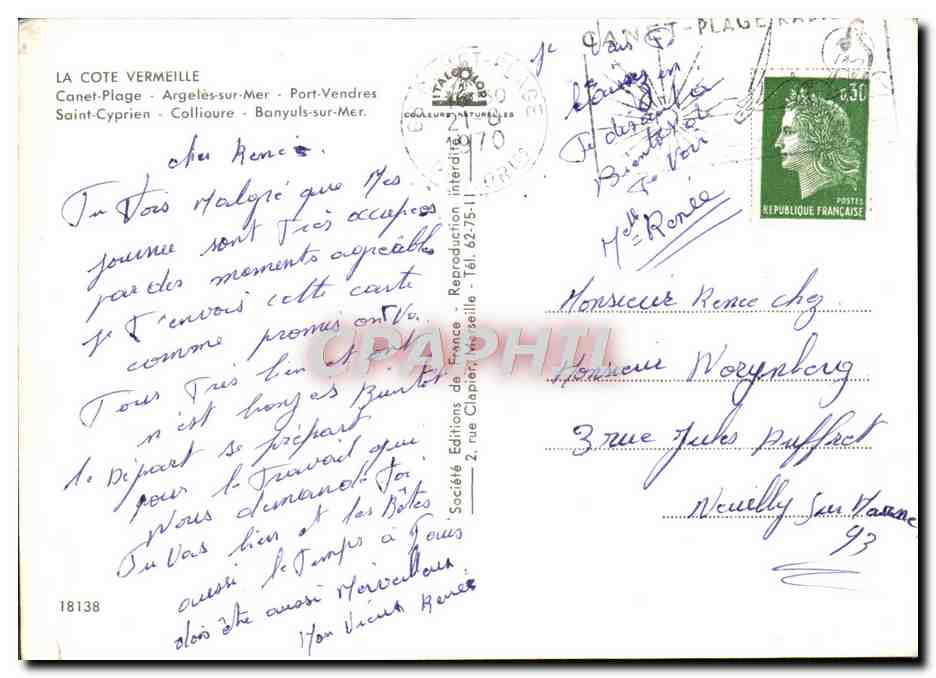 LA COTE VERMEILLE
Canet-Plage - Argelès-sur-Mer - Port-Vendres
Saint-Cyprien - Collioure - Banyuls-sur-Mer.
cher Renée.
Tu Vois Malgré que Mes
journée sont Très occupées
par des moments agréables
je T'envois cette carte
comme promis on Va
Tous Très bien et ont
n'est bronzés Bientôt
le Départ se prépart
pour le Travail qui
Nous demande Toi
Tu Vas bien et les Bêtes
aussi le Temps à Tous
dois être aussi Merveilleux
Mon Vieux Renée
18138
Société Editions de France - Reproduction interdite
2, rue Clapier, Marseille - Tél. 62-75-11
ITALCOLOR
COULEURS NATURELLES
1970
CANET-PLAGE
je Vais
en
Bientôt
Te Voir
Melle Renée
0,30
POSTES
REPUBLIQUE FRANÇAISE
Monsieur Renee chez
Monsieur Worynberg
3 rue Jules Auffret
Neuilly sur Marne
93
CPAPHIL